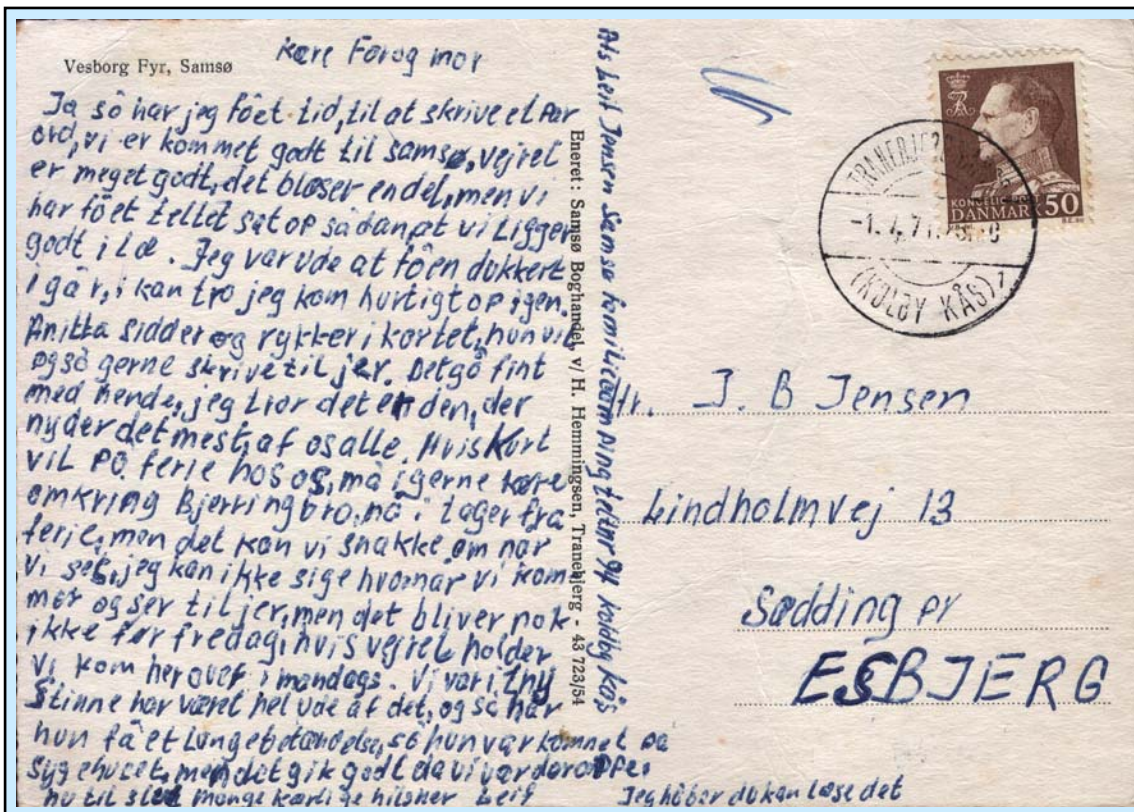 Vesborg Fyr, Samsø
Kære Far og mor
Ja så har jeg fået tid, til at skrive et par
ord, vi er kommet godt til samsø, vejret
er meget godt, det blæser en del, men vi
har fået teltet sat op sådan at vi ligger
godt i læ. Jeg var ude at få en dukkert
i går, i kan tro jeg kom hurtigt op igen.
Anitta sidder og rykker i kortet, hun vil
også gerne skrive til jer. Det gå fint
med hende, jeg tror det er den, der
nyder det mest, af os alle. Hvis Kurt
vil på ferie hos os, må i gerne køre
omkring Bjerringbro, nå i tager fra
ferie, men det kan vi snakke om når
vi ses, jeg kan ikke sige hvornår vi kom
mer og ser til jer, men det bliver nok
ikke før fredag, hvis vejret holder
vi kom her over i mandags. Vi var i
Stinne har været helt ude af det, og så har
hun fået Lungebetændelse, så hun var kommet på
sygehuset, men det gik godt da vi var deroppe.
nu til slut mange kærlige hilsner Leif
Jeg håber du kan læse det
Eneret: Samsø Boghandel, v/ H. Hemmingsen, Tranebjerg - 43 723/54
Afs Leif Jensen Samsø familiecamping telt nr 94 koldby kås
KONGELIG POST
DANMARK 50
TRANEBJERG
(KOLBY KÅS) 1
Hr. J. B Jensen
Lindholmvej 13
Sædding pr
ESBJERG